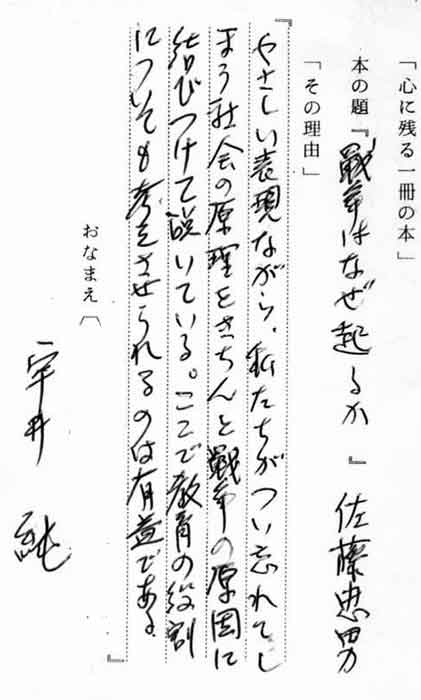 「心に残る一冊の本」
本の題『戦争はなぜ起るか』 佐藤忠男
「その理由」
『やさしい表現ながら、私たちがつい忘れてし
まう社会の原理をきちんと戦争の原因に
結びつけて説いている。ここで教育の役割
についても考えさせられるのは有益である。』
おなまえ〔
宇井 純